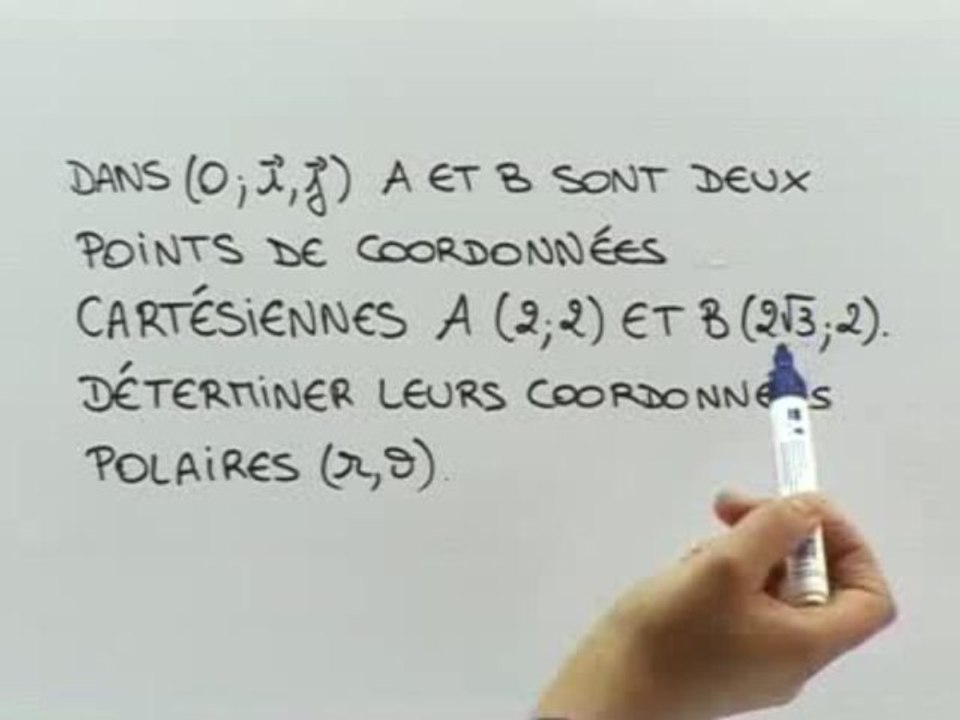 DANS (O; i⃗, j⃗) A ET B SONT DEUX
POiNTS DE COORDONNÉES
CARTÉSiENNES A (2;2) ET B (2√3;2).
DÉTERMiNER LEURS COORDONNÉES
POLAiRES (r,θ).